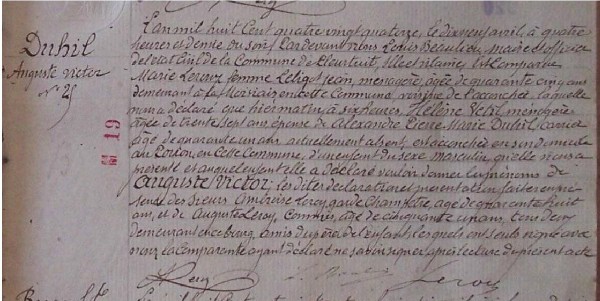 Duhil
Auguste Victor
N° 25
19
L'an mil huit cent quatre vingt quatorze, le dix neuf avril, à quatre
heures et demie du soir, Pardevant nous Louis Beaulieu, maire et officier
de l'état civil de la Commune de Pleurtuit, Ille et Vilaine, est Comparue
Marie Leroux femme Jean, ménagère, âgée de quarante cinq ans
demeurant à en cette Commune, laquelle
nous a déclaré que hier matin à six heures, Hélène ménagère
âgée de trente sept ans épouse de Alexandre Pierre Marie Duhil, marin
âgé de quarante un ans actuellement absent, est accouchée en sa demeure
au en cette Commune, d'un enfant du sexe masculin qu'elle nous a
présenté et auquel enfant elle a déclaré vouloir donner les prénoms de
Auguste Victor; les dites déclaration et présentation faites en pré
sence des sieurs Ambroise Leroy, garde Champêtre, âgé de quarante huit
ans, et de Auguste Leroy, Commis, âgé de cinquante un ans, tous deux
demeurant au Bourg, amis du père de l'enfant, lesquels ont seuls signé avec
nous, la Comparante ayant déclaré ne savoir signer, après lecture du présent acte
Leroy
Leroy